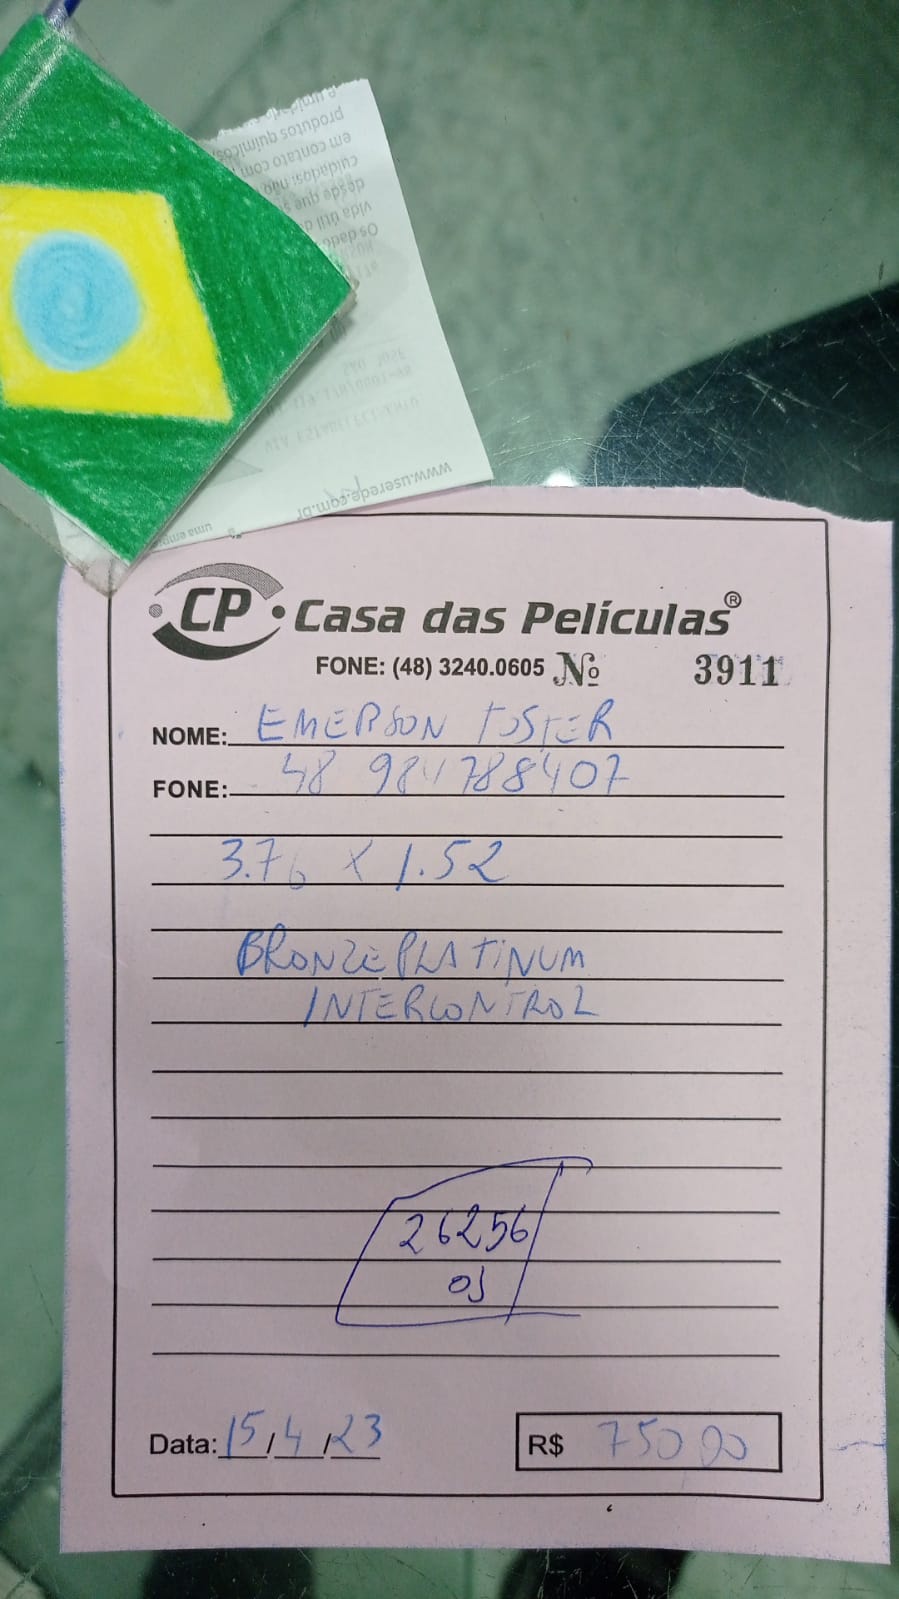 e umidade
produtos químicos,
em contato com
cuidados: não
desde que s
vida útil d
Os dado
SÃO JOSE
VIA ESTABELECIMENTO
www.userede.com.br
uma
CP Casa das Películas®
FONE: (48) 3240.0605 Nº 3911
NOME: EMERSON TOSTER
FONE: 48 984788407
3.76 X 1.52
BRONZE PLATINUM
INTERCONTROL
26256
OS
Data: 15/4/23 R$ 750 00